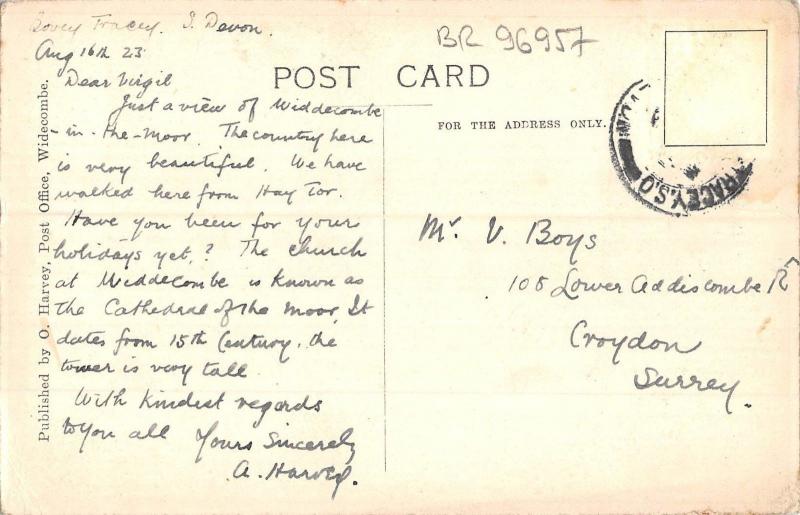 Bovey Tracey. S. Devon.
Aug 16th 23
Dear Virgil
Just a view of Widdecombe
in-the-moor. The country here
is very beautiful. We have
walked here from Hay Tor.
Have you been for your
holidays yet,? The church
at Widdecombe is known as
the Cathedral of the Moor, It
dates from 15th Century, the
tower is very tall
With kindest regards
to you all Yours Sincerely
A. Harvey.
Published by O. Harvey, Post Office, Widecombe.
BR 96957
POST CARD
FOR THE ADDRESS ONLY.
TRACEY. S.O
Mr. V. Boys
108 Lower Addiscombe Rd
Croydon
Surrey.